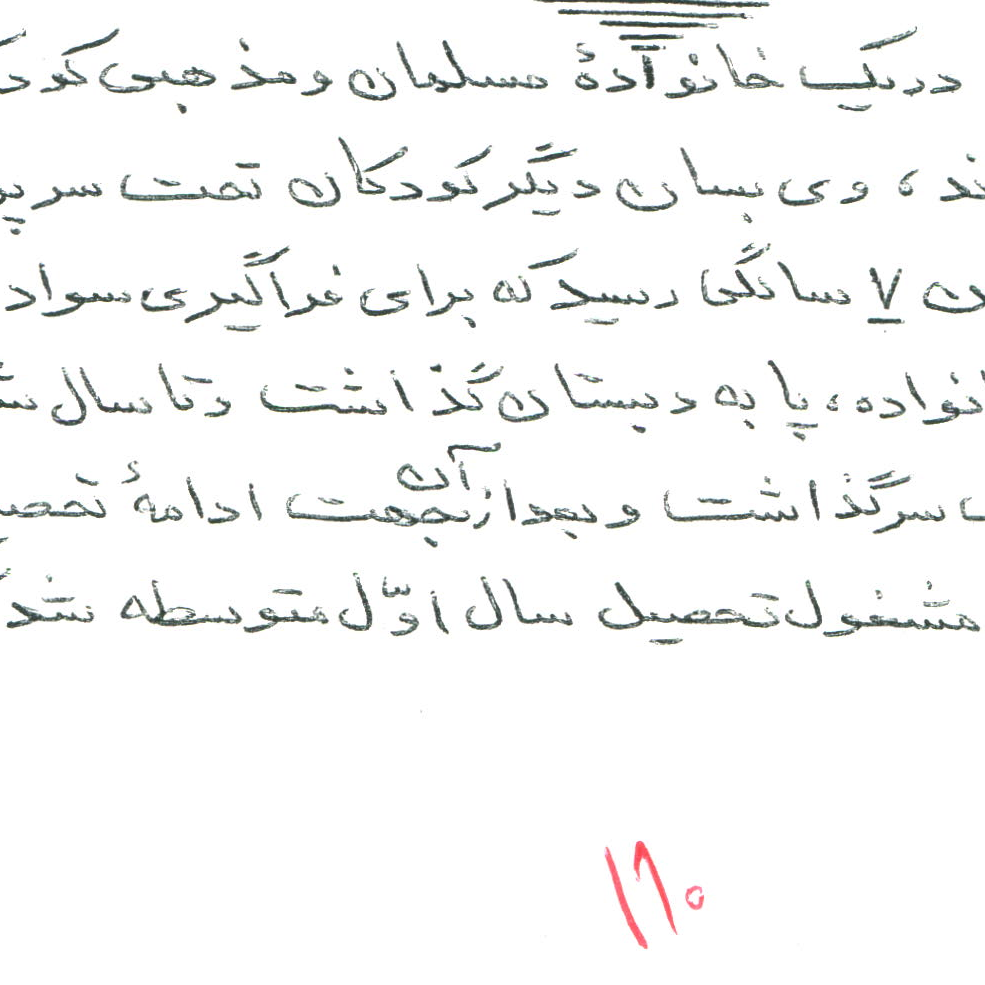 در یک خانوادۀ مسلمان و مذهبی
، وی بسان دیگر کودکان تحت
۷ سالگی رسید که برای فراگیری سواد
، پا به دبستان گذاشت و تا سال
سر گذاشت و بعد از آن جهت ادامۀ
مشغول تحصیل سال اوّل متوسطه